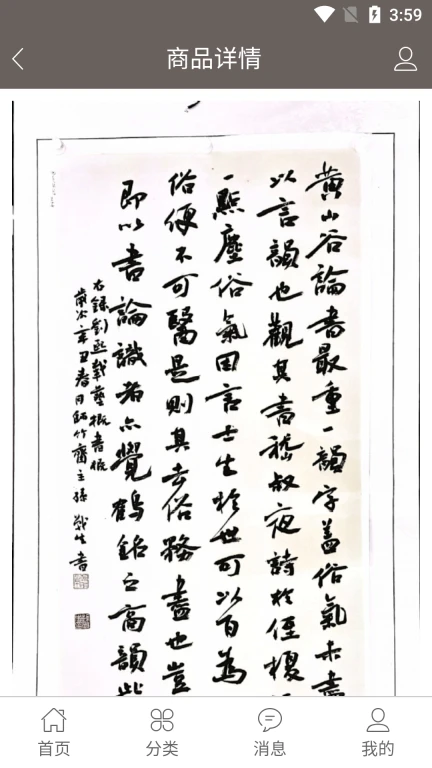 3:59
商品详情
黃山谷論書最重一韻字蓋俗氣未盡
以言韻也觀其書嵇叔夜詩於侄榎
一點塵俗氣因言士生於世可以百為
俗便不可醫是則其去俗務盡也豈
即以書論識者亦覺鶴銘之高韻此
右錄劉熙載藝概書概
歲次辛丑春月 竹齋主孫 生書
首页
分类
消息
我的